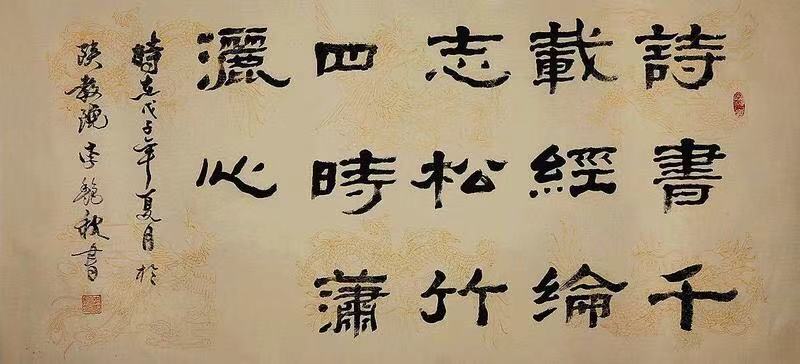 詩書千
載經綸
志松竹
四時瀟
灑心
時在戊子年夏月於
陝教院李秋書